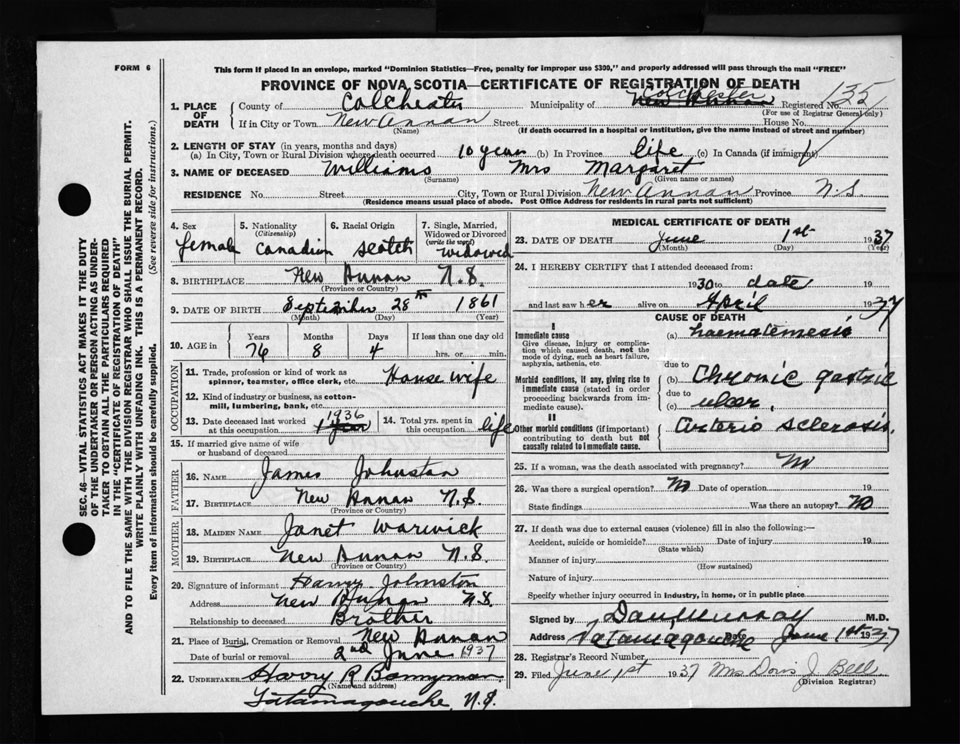 FORM 6
This form if placed in an envelope, marked "Dominion Statistics—Free, penalty for improper use $300," and properly addressed will pass through the mail "FREE"
PROVINCE OF NOVA SCOTIA—CERTIFICATE OF REGISTRATION OF DEATH
1. PLACE OF DEATH
County of Colchester Municipality of Colchester New Annan Registered No. 135
(For use of Registrar General only)
If in City or Town New Annan Street House No.
(Name) (If death occurred in a hospital or institution, give the name instead of street and number)
2. LENGTH OF STAY (in years, months and days)
(a) In City, Town or Rural Division where death occurred 10 years (b) In Province life (c) In Canada (if immigrant)
3. NAME OF DECEASED Williams Mrs Margaret
(Surname) (Given name or names)
RESIDENCE No. Street City, Town or Rural Division New Annan Province N.S
(Residence means usual place of abode. Post Office Address for residents in rural parts not sufficient)
4. Sex female
5. Nationality (Citizenship) Canadian
6. Racial Origin Scotch
7. Single, Married, Widowed or Divorced (write the word) Widowed
8. BIRTHPLACE New Annan N.S.
(Province or Country)
9. DATE OF BIRTH September 28th 1861
(Month) (Day) (Year)
10. AGE in Years Months Days If less than one day old
76 8 4 hrs. or min.
OCCUPATION
11. Trade, profession or kind of work as spinner, teamster, office clerk, etc. House wife
12. Kind of industry or business, as cotton-mill, lumbering, bank, etc.
13. Date deceased last worked at this occupation 1936 1 year
14. Total yrs. spent in this occupation life
15. If married give name of wife or husband of deceased
FATHER
16. NAME James Johnston
17. BIRTHPLACE New Annan N.S.
(Province or Country)
MOTHER
18. MAIDEN NAME Janet Warwick
19. BIRTHPLACE New Annan N.S.
(Province or Country)
20. Signature of informant Harry Johnston
Address New Annan N.S.
Relationship to deceased Brother
21. Place of Burial, Cremation or Removal New Annan
Date of burial or removal 2nd June 1937
22. UNDERTAKER Harry R Bonnyman
(Name and address)
Tatamagouche, N.S.
MEDICAL CERTIFICATE OF DEATH
23. DATE OF DEATH June 1st 1937
(Month) (Day) (Year)
24. I HEREBY CERTIFY that I attended deceased from:
1930 to date
and last saw her alive on April 1937
CAUSE OF DEATH
I
Immediate cause
Give disease, injury or complication which caused death, not the mode of dying, such as heart failure, asphyxia, asthenia, etc.
(a) haematemesis
due to
Morbid conditions, if any, giving rise to immediate cause (stated in order proceeding backwards from immediate cause).
(b) Chronic gastric
due to
(c) ulcer.
II
Other morbid conditions (if important) contributing to death but not causally related to immediate cause.
Arterio sclerosis.
25. If a woman, was the death associated with pregnancy? No
26. Was there a surgical operation? No Date of operation 19
State findings Was there an autopsy? No
27. If death was due to external causes (violence) fill in also the following:—
Accident, suicide or homicide? Date of injury 19
(State which)
Manner of injury
(How sustained)
Nature of injury
Specify whether injury occurred in industry, in home, or in public place
Signed by Dan Murray M.D.
Address Tatamagouche Date June 1st 1937
28. Registrar's Record Number
29. Filed June 1st 1937 Mrs Doris J Bell
(Division Registrar)
SEC. 46—VITAL STATISTICS ACT MAKES IT THE DUTY
OF THE UNDERTAKER OR PERSON ACTING AS UNDER-
TAKER TO OBTAIN ALL THE PARTICULARS REQUIRED
IN THE "CERTIFICATE OF REGISTRATION OF DEATH"
AND TO FILE THE SAME WITH THE DIVISION REGISTRAR WHO SHALL ISSUE THE BURIAL PERMIT.
WRITE PLAINLY WITH UNFADING INK. THIS IS A PERMANENT RECORD.
Every item of information should be carefully supplied. (See reverse side for instructions.)